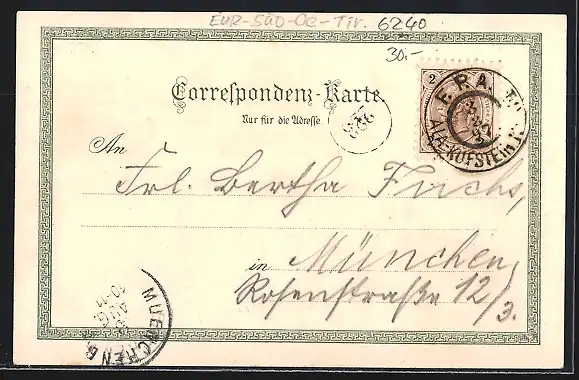 EUR-SÜD-OE-Tir. 6240
30.-
Correspondenz-Karte
Nur für die Adresse.
2
KUFSTEIN
97
An
Frl. Bertha Fuchs,
in München
Rosenstraße 12/3.
MUENCHEN
AUG.
10-11